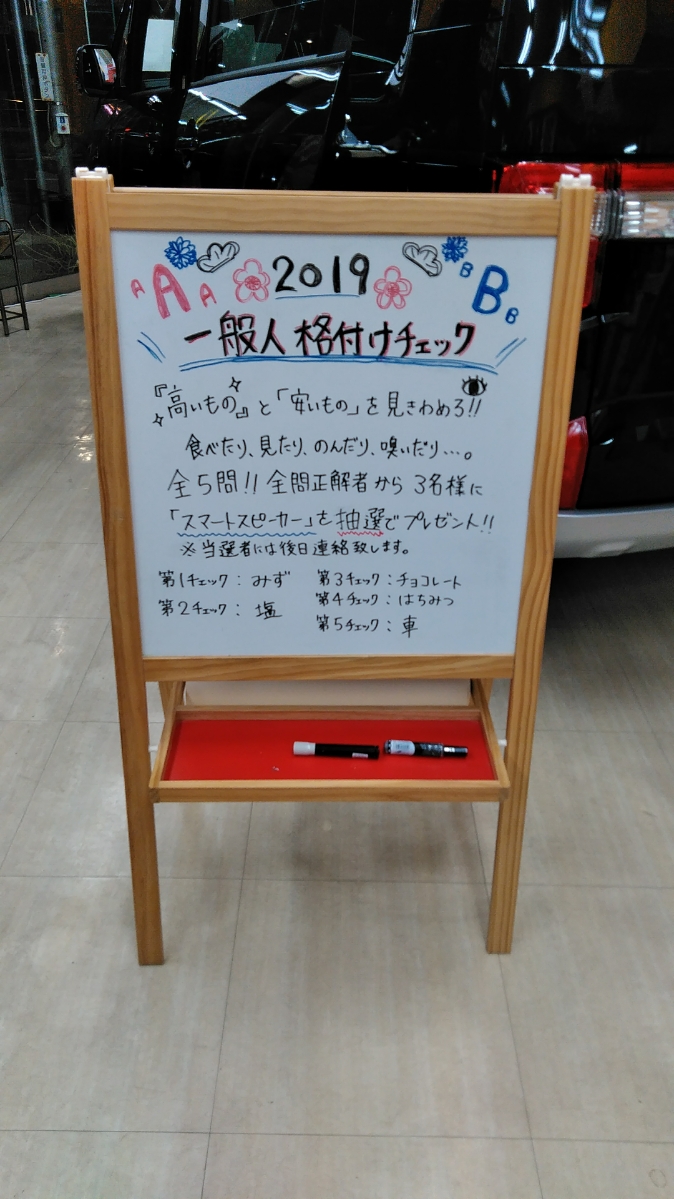 A A A 2019 B B B
一般人格付けチェック
『高いもの』と「安いもの」を見きわめろ!!
食べたり、見たり、のんだり、嗅いだり…。
全5問!! 全問正解者から 3名様に
「スマートスピーカー」を抽選でプレゼント!!
※当選者には後日連絡致します。
第1チェック：みず
第2チェック：塩
第3チェック：チョコレート
第4チェック：はちみつ
第5チェック：車